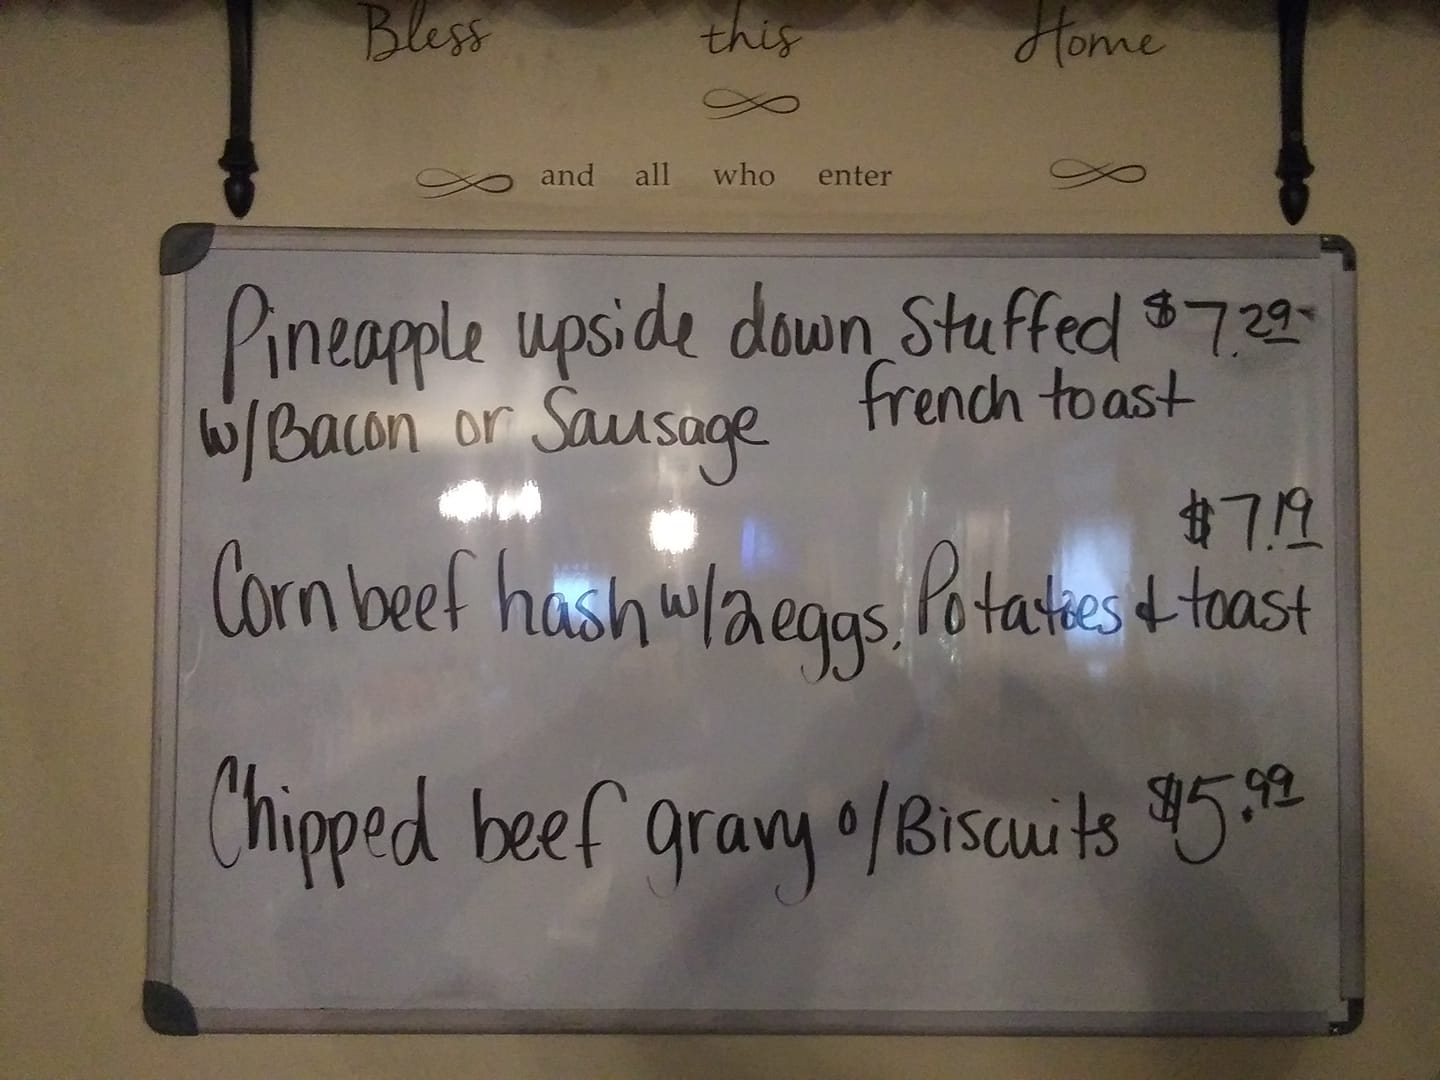 Bless this Home
and all who enter
Pineapple upside down Stuffed $7.29
w/Bacon or Sausage french toast
$7.19
Corn beef hash w/2 eggs, Potatoes & toast
Chipped beef gravy o/Biscuits $5.99